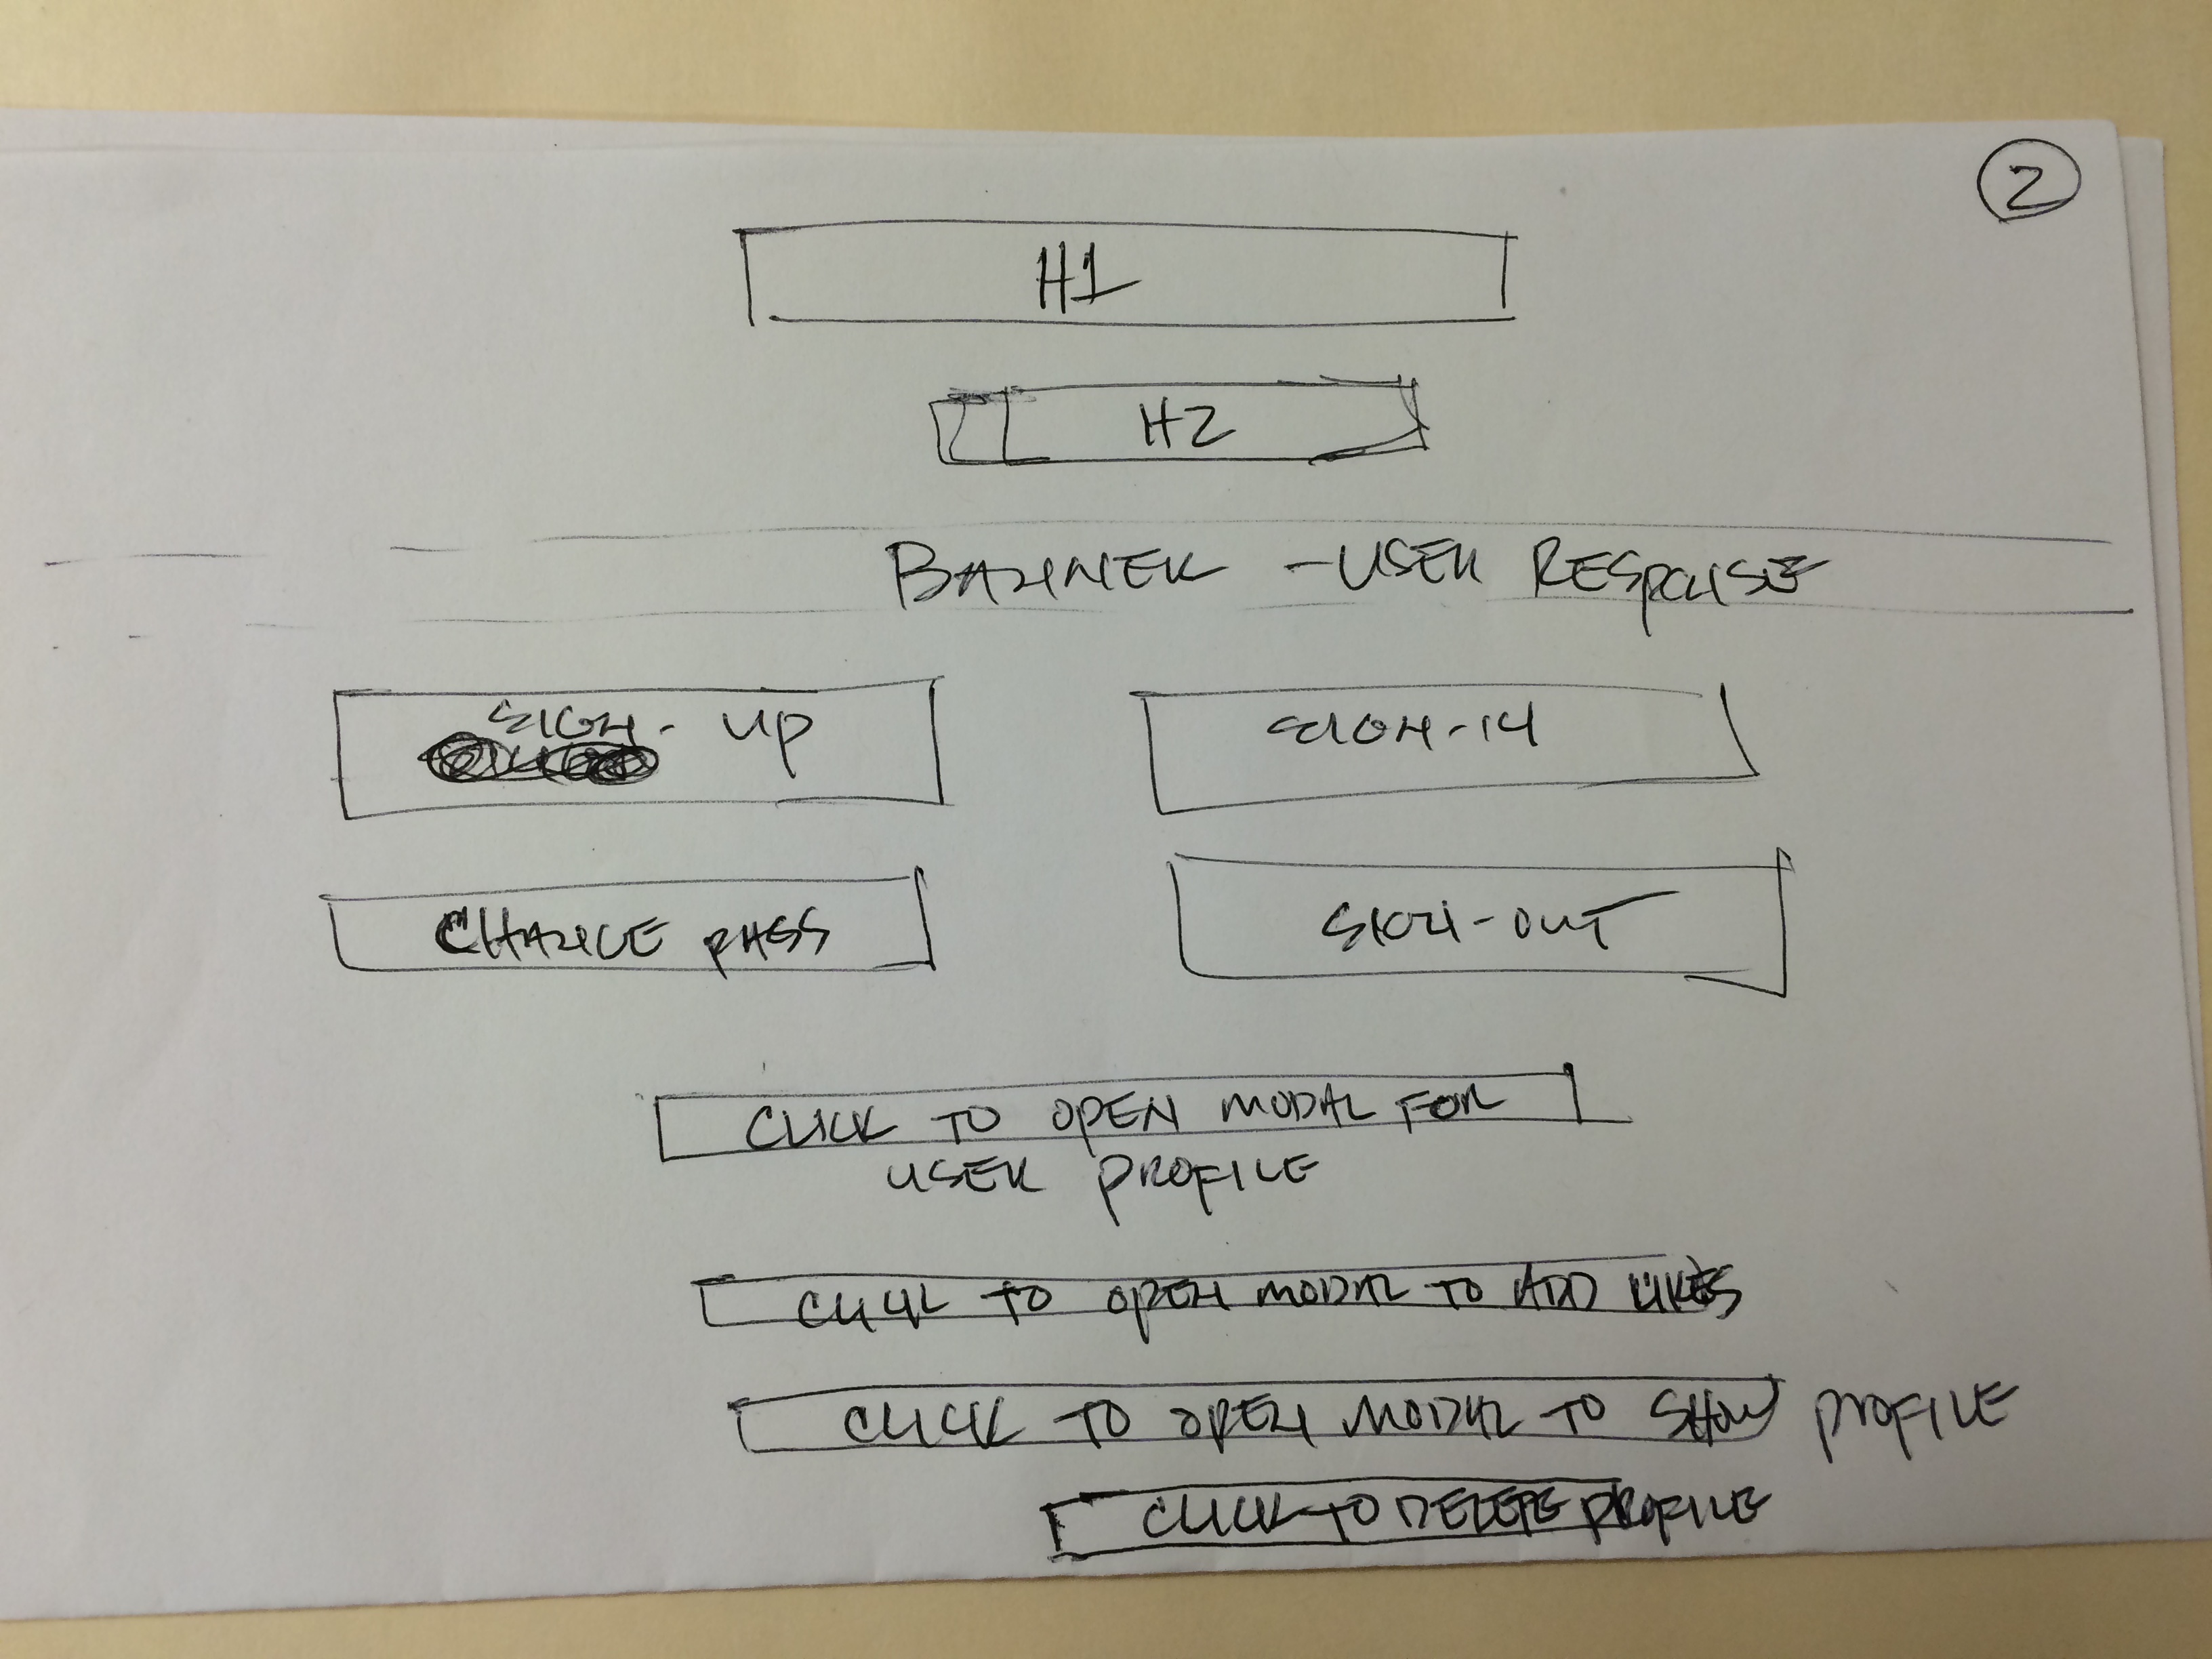 2
H1
H2
BANNER - USER RESPONSE
SIGN-UP
SIGN-IN
CHANGE PASS
SIGN-OUT
CLICK TO OPEN MODAL FOR
USER PROFILE
CLICK TO OPEN MODAL TO ADD LIKES
CLICK TO OPEN MODAL TO SHOW PROFILE
CLICK TO DELETE PROFILE